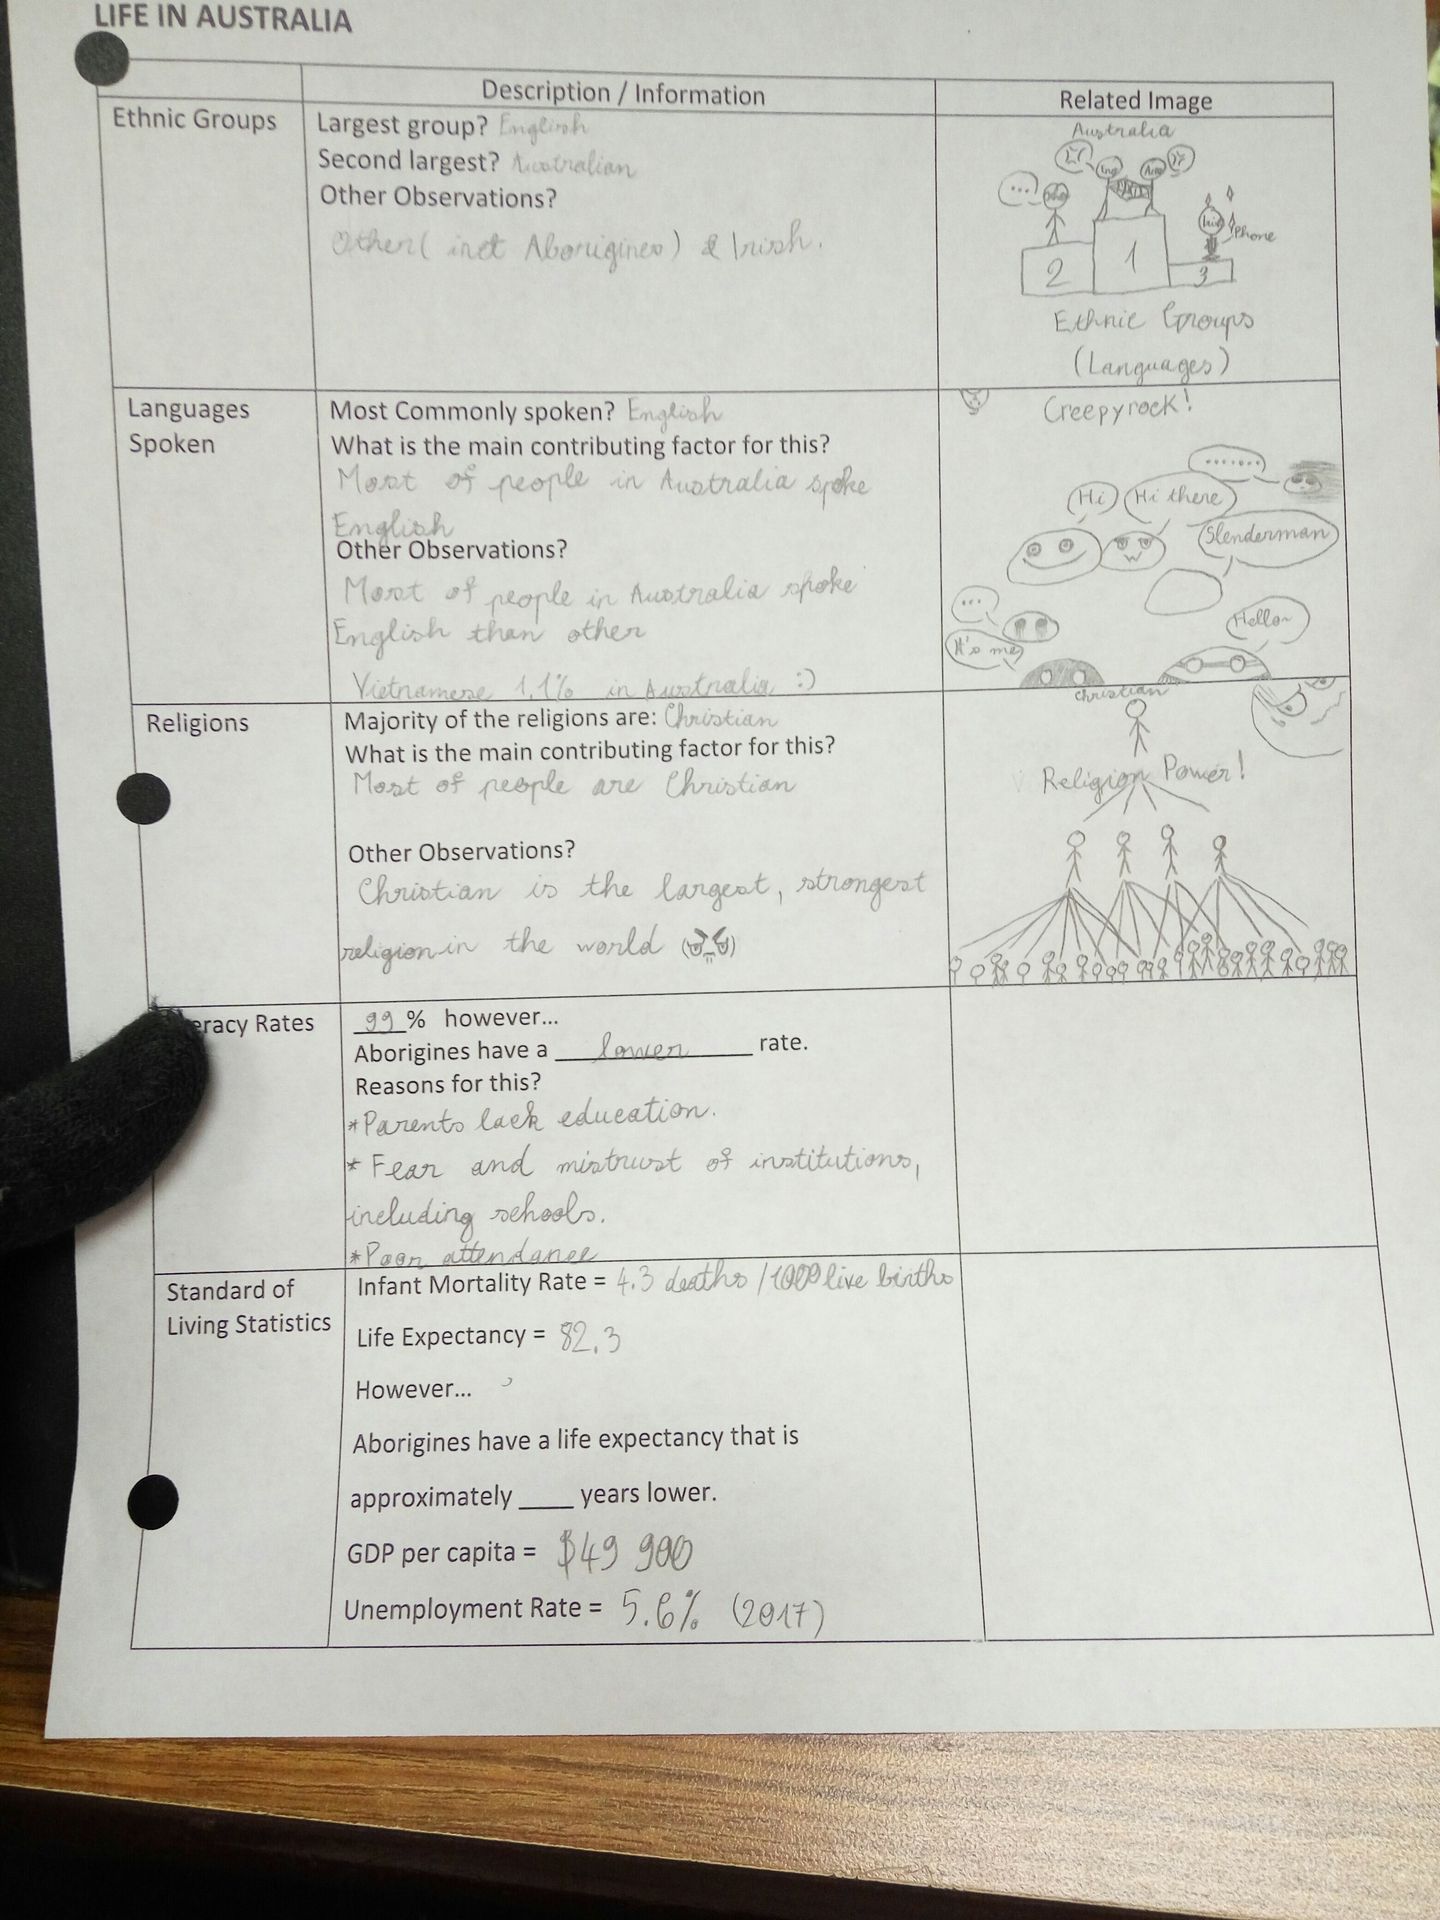 LIFE IN AUSTRALIA
Description / Information
Related Image
Ethnic Groups
Largest group? English
Second largest? Australian
Other Observations?
Other ( inct Aborigines) & Irish.
Australia
...
2
1
3
Phone
Ethnic Groups
(Languages)
Languages
Spoken
Most Commonly spoken? English
What is the main contributing factor for this?
Most of people in Australia spoke
English
Other Observations?
Most of people in Australia spoke
English than other
Vietnamese 1,1% in Australia :)
Creepyrock!
.......
Hi
Hi there
Slenderman
...
It's me
Hello
Religions
Majority of the religions are: Christian
What is the main contributing factor for this?
Most of people are Christian
Other Observations?
Christian is the largest, strongest
religion in the world
Christian
Religion Power!
eracy Rates
99 % however...
Aborigines have a lower rate.
Reasons for this?
*Parents lack education.
* Fear and mistrust of institutions,
including schools.
*Poor attendance
Standard of
Living Statistics
Infant Mortality Rate = 4.3 deaths /1000 live births
Life Expectancy = 82.3
However...
Aborigines have a life expectancy that is
approximately ____ years lower.
GDP per capita = $49 900
Unemployment Rate = 5.6% (2017)